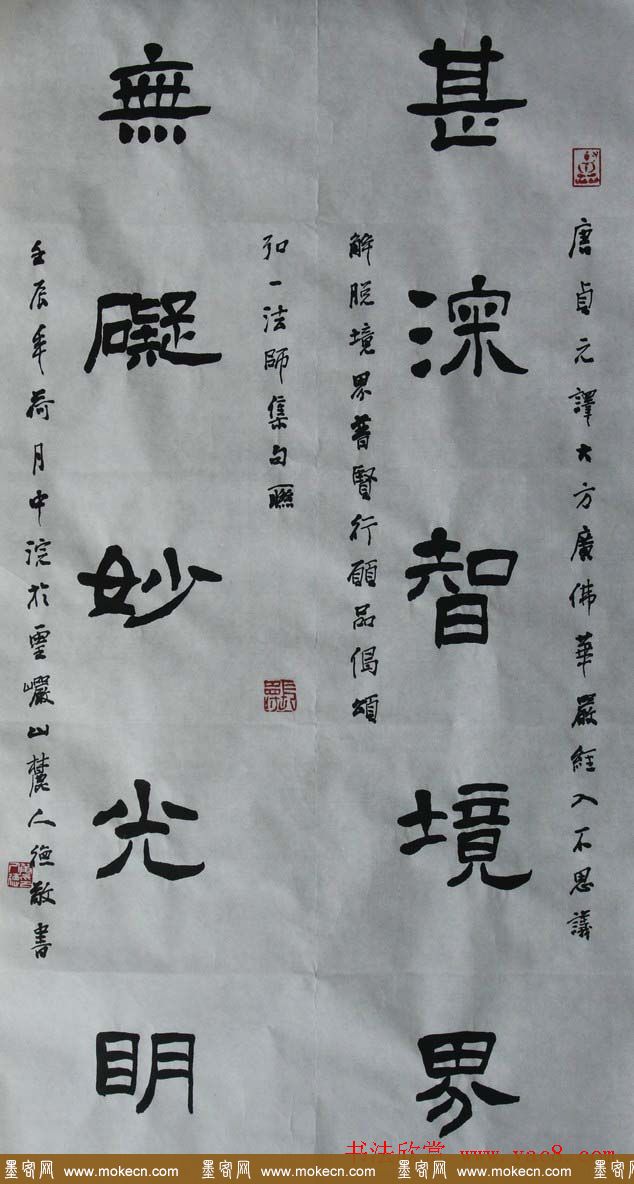 唐貞元譯大方廣佛華嚴經入不思議
甚深智境界
解脱境界普賢行願品偈頌
弘一法師集句聯
無礙妙光明
壬辰年荷月中浣於靈巖山麓人德敬書
书法欣赏 www.yac8.com
墨客网 www.mokecn.com 墨客网 www.mokecn.com 墨客网 www.mokecn.com